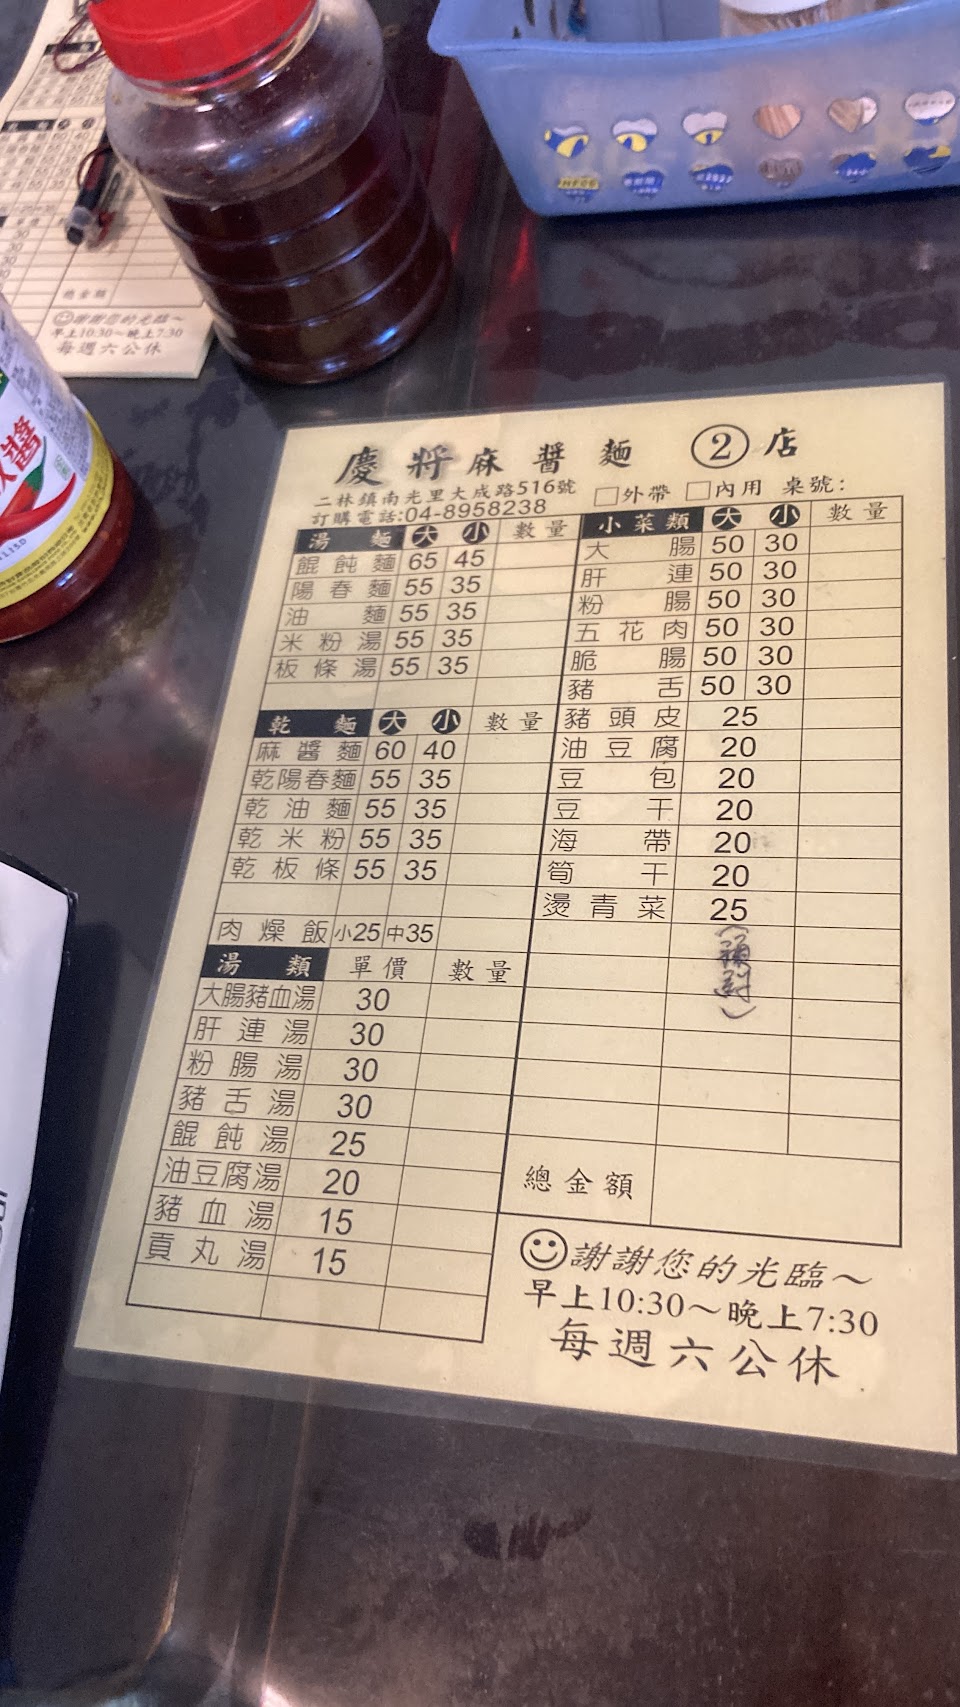 總金額
謝謝您的光臨~
早上10:30~晚上7:30
每週六公休
醬
慶將麻醬麵 ②店
二林鎮南光里大成路516號
訂購電話:04-8958238
外帶 內用 桌號:
湯麵 大 小 數量
餛飩麵 65 45
陽春麵 55 35
油麵 55 35
米粉湯 55 35
板條湯 55 35
乾麵 大 小 數量
麻醬麵 60 40
乾陽春麵 55 35
乾油麵 55 35
乾米粉 55 35
乾板條 55 35
肉燥飯 小25 中35
湯類 單價 數量
大腸豬血湯 30
肝連湯 30
粉腸湯 30
豬舌湯 30
餛飩湯 25
油豆腐湯 20
豬血湯 15
貢丸湯 15
小菜類 大 小 數量
大腸 50 30
肝連 50 30
粉腸 50 30
五花肉 50 30
脆腸 50 30
豬舌 50 30
豬頭皮 25
油豆腐 20
豆包 20
豆干 20
海帶 20
筍干 20
燙青菜 25
總金額
謝謝您的光臨~
早上10:30~晚上7:30
每週六公休